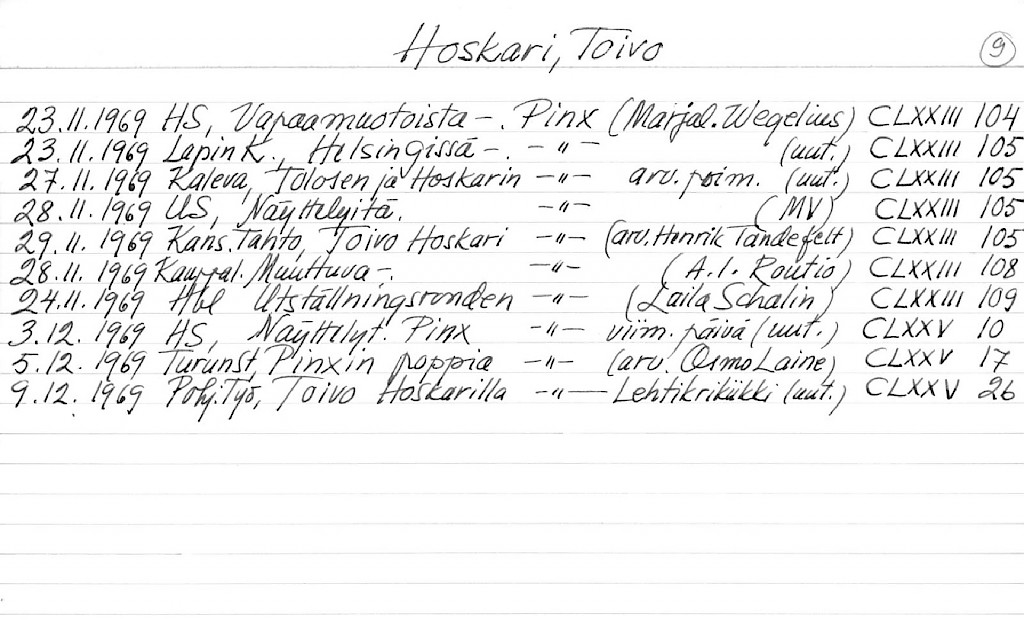 Hoskari, Toivo 9
23.11.1969 HS, Vapaamuotoista -. Pinx (Marjal. Wegelius) CLXXIII 104
23.11.1969 Lapin K., Helsingissä -. -"- (uut.) CLXXIII 105
27.11.1969 Kaleva, Tolosen ja Hoskarin -"- arv. poim. (uut.) CLXXIII 105
28.11.1969 US, Näyttelyitä. -"- (MV) CLXXIII 105
29.11.1969 Kans. Tahto, Toivo Hoskari -"- (arv. Henrik Tandefelt) CLXXIII 105
28.11.1969 Kauppal. Muuttuva -. -"- (A.I. Routio) CLXXIII 108
24.11.1969 Hbl Utställningsronden -"- (Laila Schalin) CLXXIII 109
3.12.1969 HS, Näyttelyt. Pinx -"- viim. päivä (uut.) CLXXV 10
5.12.1969 Turunst, Pinxin poppia -"- (arv. Osmo Laine) CLXXV 17
9.12.1969 Pohj. Työ, Toivo Hoskarilla -"- Lehtikritiikki (uut.) CLXXV 26